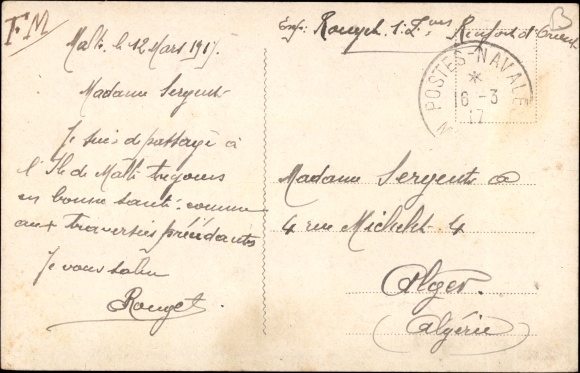 FM
Malte le 12 Mars 1917.
Exp: Rouget 1. Z. Renfort d'Orient
POSTES-NAVALE
*
16-3
17
Madame Sergent
Je suis d passage à
l'Ile de Malte toujours
en bonne santé. comme
aux traversies précédantes
Je vous salue
Rouget
Madame Sergents
4 rue Michelet 4
Alger.
(Algérie)